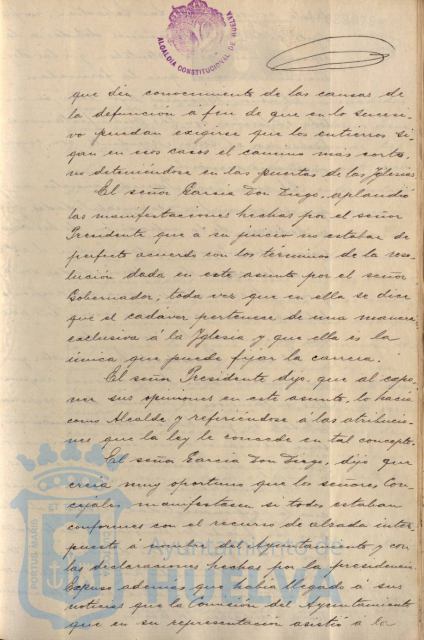 ALCALDIA CONSTITUCIONAL DE HUELVA
que den conocimiento de las causas de
la defunción á fin de que en lo sucesi-
vo puedan exigirse que los entierros si-
gan en esos casos el camino más corto,
no deteniéndose en las puertas de las Iglesias.
El señor Garcia Don Diego, aplaudió
las manifestaciones hechas por el señor
Presidente que á su juicio no estaban de
perfecto acuerdo con los términos de la reso-
lución dada en este asunto por el señor
Gobernador, toda vez que en ella se dice
que el cadaver pertenece de una manera
exclusiva á la Iglesia y que ella es la
única que puede fijar la carrera.
El señor Presidente dijo, que al expo-
ner sus opiniones en este asunto, lo hacia
como Alcalde y refiriéndose á las atribucio-
nes que la ley le concede en tal concepto.
El señor Garcia Don Diego, dijo que
creia muy oportuno que los señores Con-
cejales manifestasen si todos estaban
conformes con el recurso de alzada inter-
puesto á nombre del Ayuntamiento y con
las declaraciones hechas por la presidencia.
Expuso además que habia llegado á sus
noticias que la Comisión del Ayuntamiento
que en su representación asistió á la
PORTUS MARIS ET
Ayuntamiento de
HUELVA